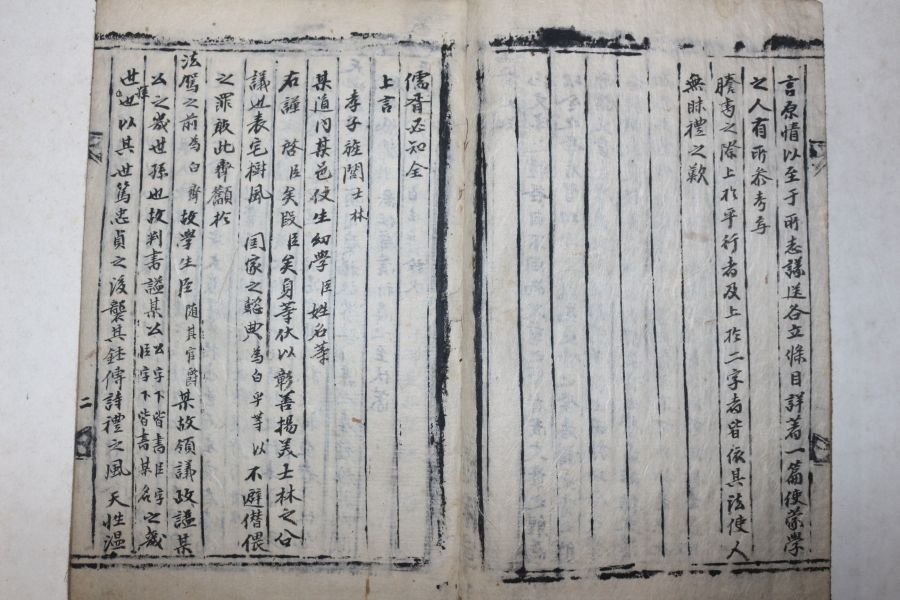 言原情以至于所志議送各立條目詳著一篇使蒙學
之人有所參考焉
謄書之際上於平行者及上於二字者皆依其法使人
無昧禮之歎
儒胥必知全
上言
孝子旌閭士林
某道內某邑伩生幼學臣姓名等
右謹 啓臣矣段臣矣身等伏以彰善揚美士林之公
議世表宅樹風 国家之懿典為白乎等以不避僭偎
之罪敢此齊籲於
法駕之前為白齊故學生臣隨其官爵某故領議政諡某
公之幾世孫也故判書諡某公公字下皆書臣字臣字下皆書某名之幾
世世以其世篤忠貞之後襲其鈺傳詩禮之風天性溫
二